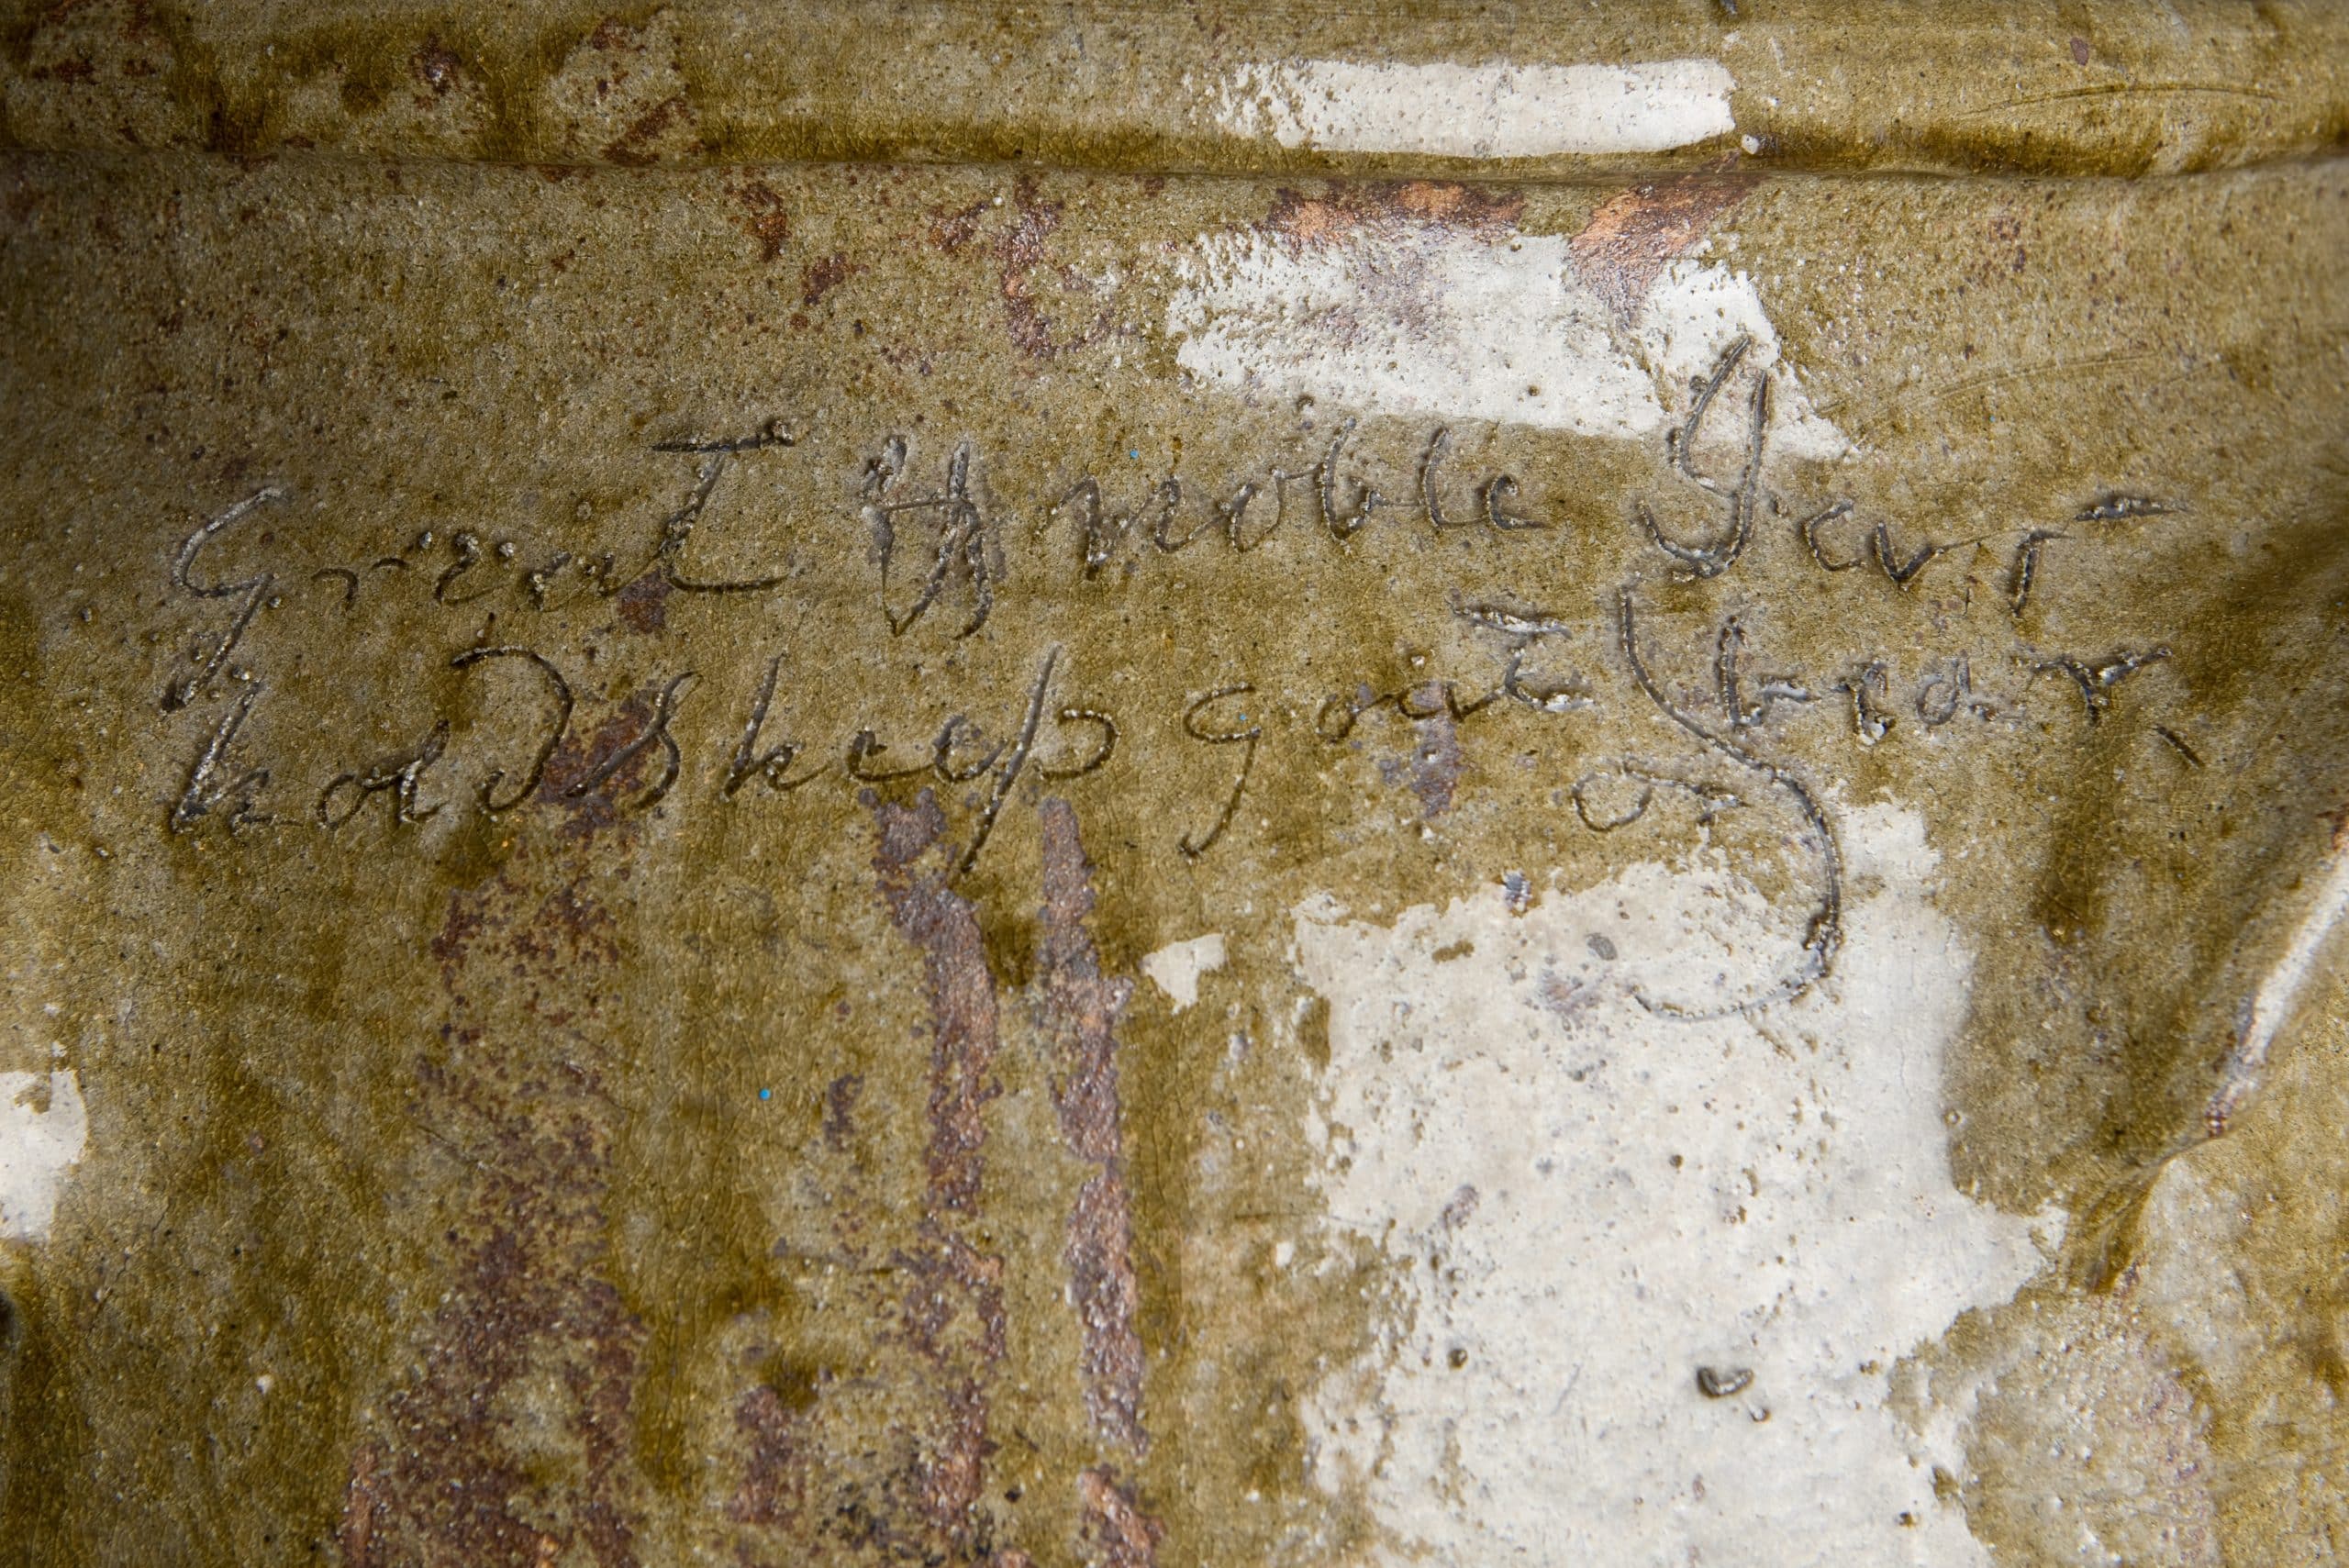 Great & noble Jar
hold Sheep goat or bear,